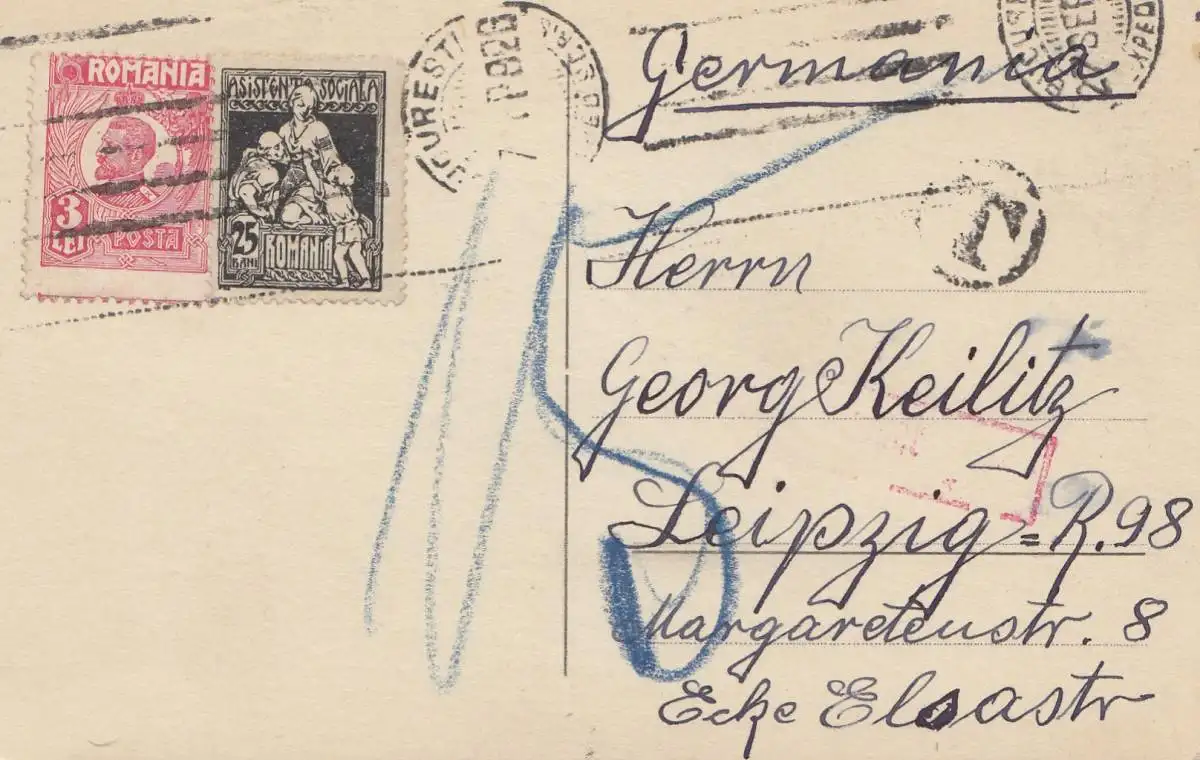 ROMANIA
3
LEI
POSTA
ASISTENȚA SOCIALA
25
BANI
ROMANIA
BUCUREȘTI
SEP
EXPED
Germania
T
15
Herrn
Georg Keilitz
Leipzig = R. 98
Margaretenstr. 8
Ecke Elsastr